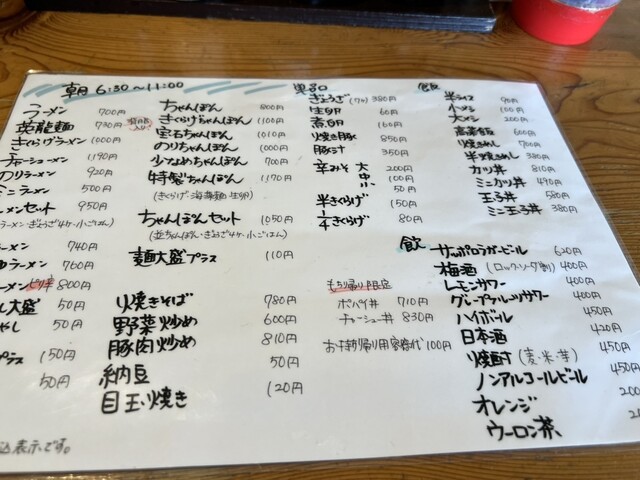 朝 6:30～11:00
ラーメン 700円
英龍麺 730円
きくらげラーメン 1000円
チャーシューメン 1190円
のりラーメン 920円
ミニラーメン 500円
ーメンセット 950円
ラーメン・ぎょうざ4ケ・小ごはん)
ーメン 740円
ゆラーメン 760円
ーメン ピリ辛 800円
し大盛 50円
やし 50円
プラス 150円
50円
込表示です。
ちゃんぽん 800円
きくらげちゃんぽん 1100円
宝石ちゃんぽん 1010円
のりちゃんぽん 1000円
少なめちゃんぽん 700円
特製ちゃんぽん 1170円
(きくらげ・海藻麺・生卵)
ちゃんぽんセット 1050円
(並ちゃんぽん・ぎょうざ4ケ・小ごはん)
麺大盛プラス 110円
焼きそば 780円
野菜炒め 600円
豚肉炒め 810円
納豆 50円
目玉焼き 120円
単品
ぎょうざ (7ケ) 380円
生卵 60円
煮卵 160円
焼き豚 850円
豚汁 350円
辛みそ 大 200円
中 100円
小 50円
半きくらげ 150円
1/4きくらげ 80円
もち帰り限定
ポパイ丼 710円
チャーシュー丼 830円
お持帰り用容器代 100円
飯
半ライス 90円
小メシ
大メシ 200円
高菜飯 600円
焼めし 700円
半焼めし 380円
カツ丼 810円
ミニカツ丼 490円
玉子丼 580円
ミニ玉子丼 380円
飲
サッポロラガービール 620円
梅酒 (ロック・ソーダ割) 400円
レモンサワー 400円
グレープフルーツサワー 400円
ハイボール 450円
日本酒 420円
焼酎 (麦・米・芋) 450円
ノンアルコールビール 450円
オレンジ 200
ウーロン茶